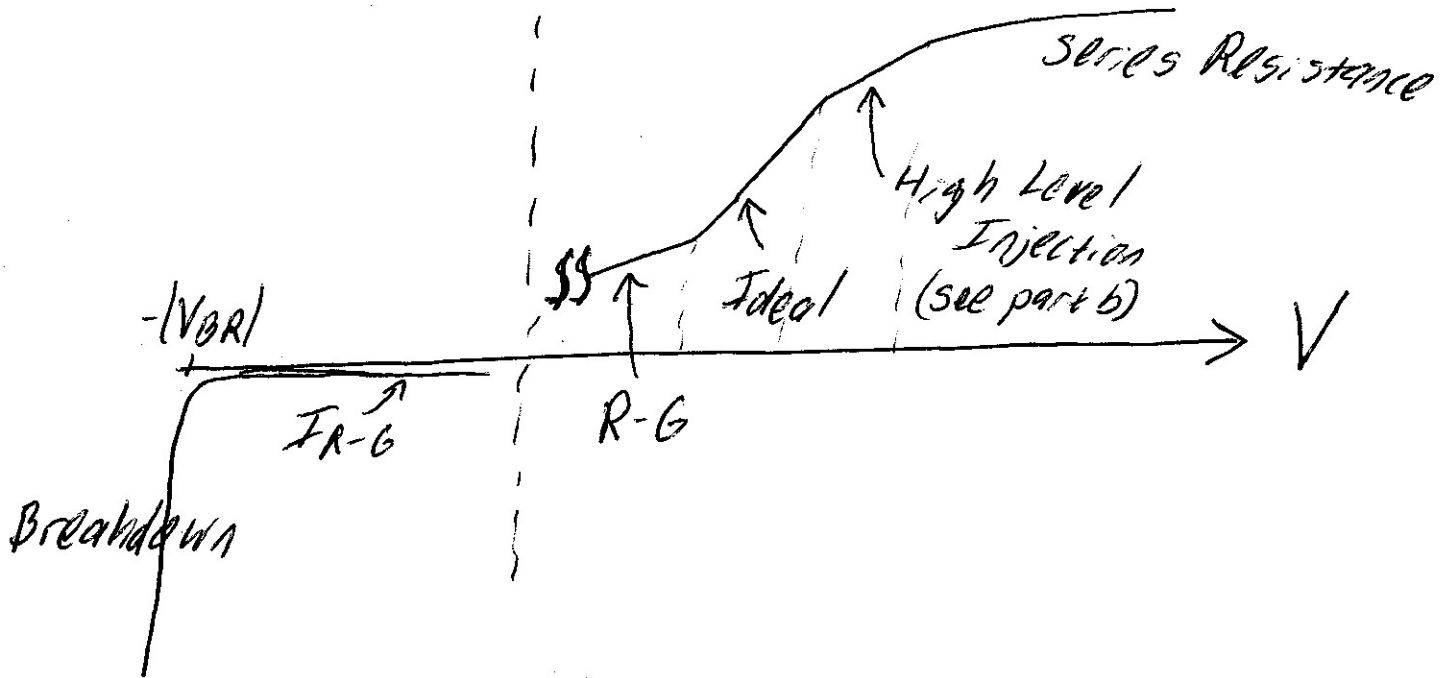 Series Resistance
High Level
Injection
(see part b)
Ideal
$$
-|VBR|
V
R-G
IR-G
Breakdown